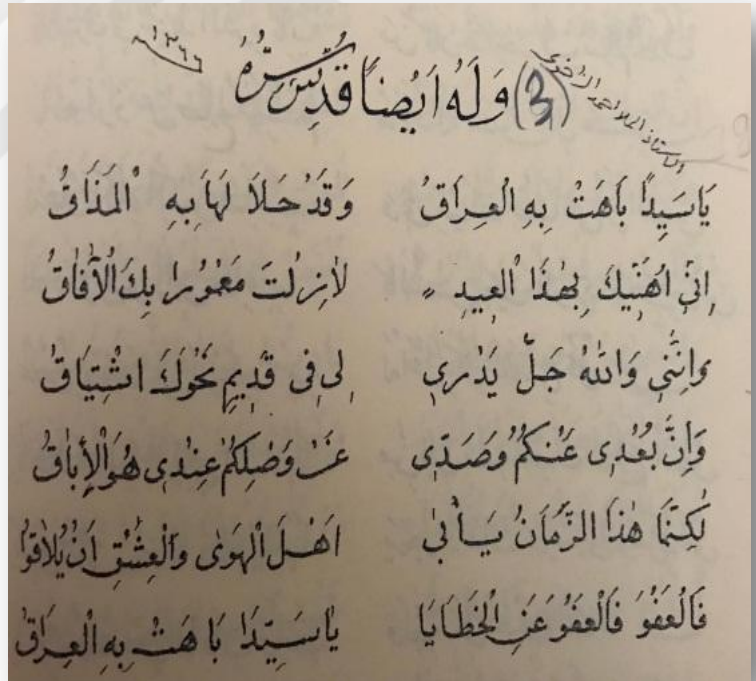 ١٣٦٦هـ
(3) وَلَهُ اَيْضاً قُدِّسَ سِرُّهُ
يَاسَيِّدًا بَاهَتْ بِهِ الْعِرَاقُ وَقَدْ حَلاَ لَهَا بِهِ الْمَذَاقُ
اِنّي اُهَنّيكَ بِهٰذَا الْعِيدِ لاٰزِلْتَ مَعْمُورا بِكَ الْاٰفَاقُ
وَاِنَّنى وَاللّٰهُ جَلَّ يَدْرى لى فى قَديمٍ نَحْوَكَ اشْتِيَاقُ
وَاِنَّ بُعْدى عَنْكُمُ وَصَدّى عَنْ وَصْلِكُمْ عِنْدى هُوَ الْاِبَاقُ
لٰكِنَّمَا هٰذَا الزَّمَانُ يَأْبىٰ اَهْلَ الْهَوٰى وَالْعِشْقِ اَنْ يُلاٰقوُا
فَالْعَفْوَ فَالْعَفْوَ عَنِ الْخَطَايَا يَاسَيِّدًا بَاهَتْ بِهِ الْعِرَاقُ